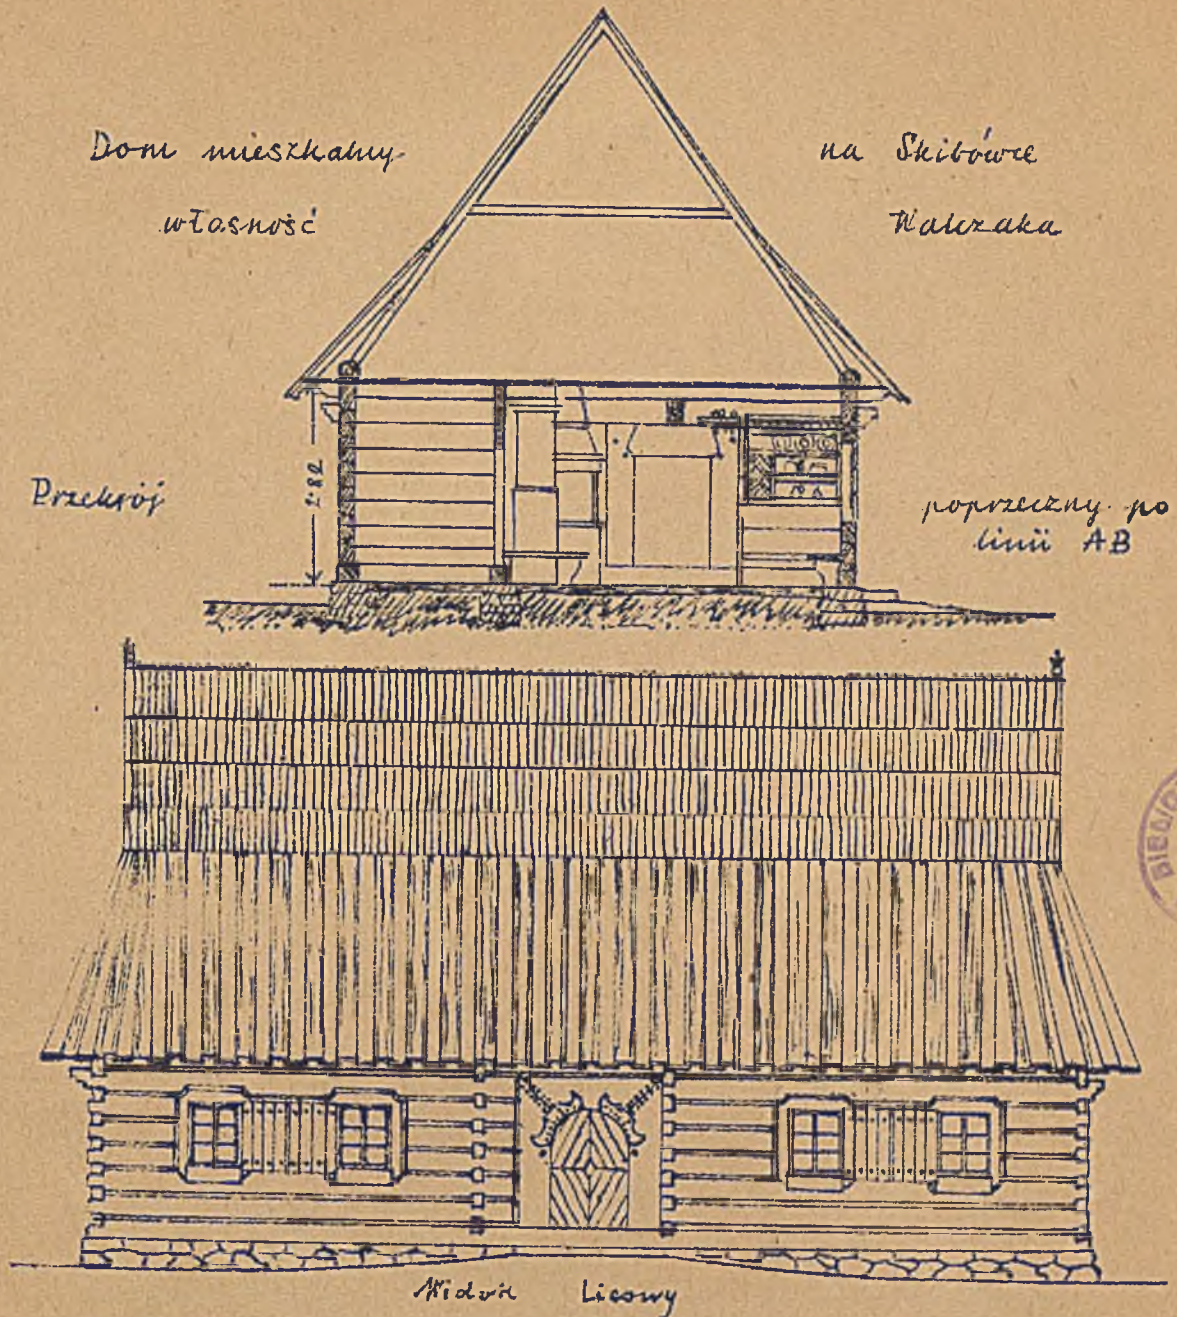 Dom mieszkalny na Skibówce
własność Walczaka
2.82
Przekrój poprzeczny po
linii AB
BIBLIO
Widok Licowy